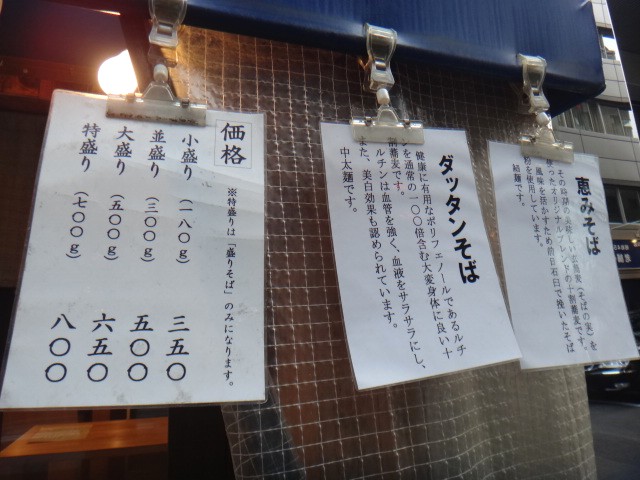 恵みそば
その時期の美味しい玄蕎麦（そばの実）を
使ったオリジナルブレンドの十割蕎麦です。
風味を活かすため前日石臼で挽いたそば
粉を使用しています。
細麺です。
ダッタンそば
健康に有用なポリフェノールであるルチ
ンを通常の一〇〇倍含む大変身体に良い十
割蕎麦です。
ルチンは血管を強く、血液をサラサラにし、
また、美白効果も認められています。
中太麺です。
価格
※特盛りは「盛りそば」のみになります。
小盛り（一八〇g） 三五〇
並盛り（三〇〇g） 五〇〇
大盛り（五〇〇g） 六五〇
特盛り（七〇〇g） 八〇〇